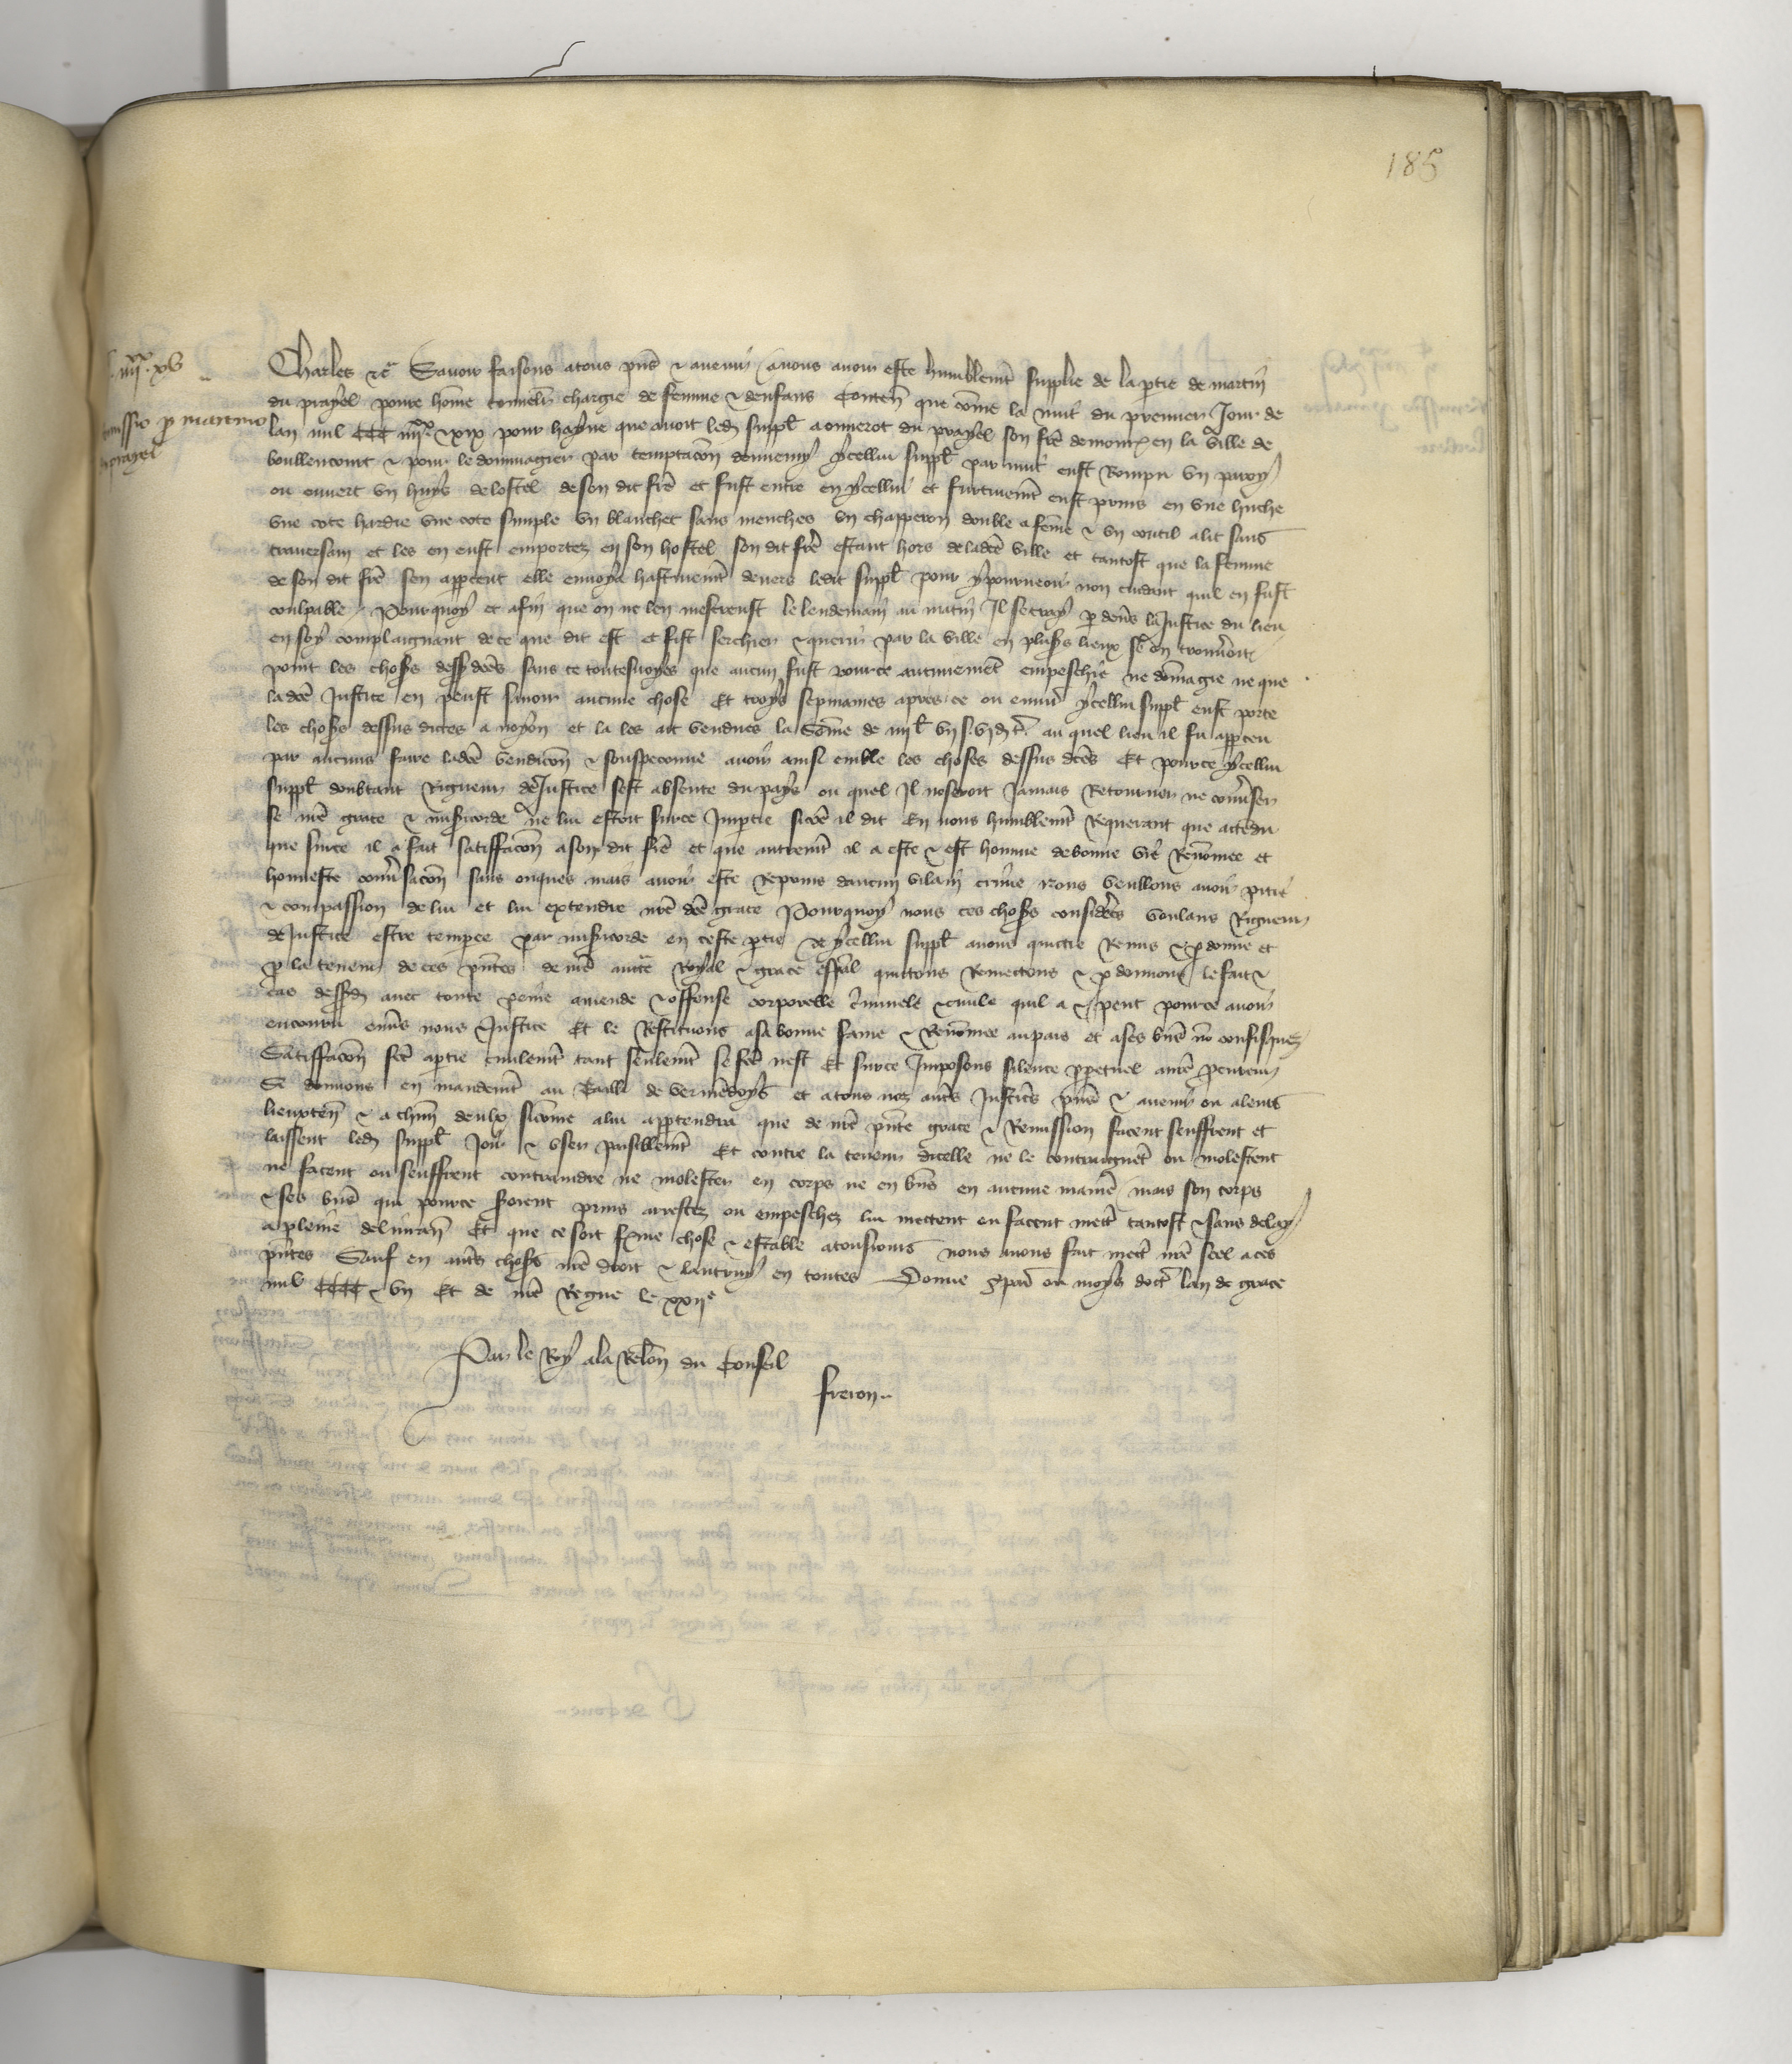 185
iiii xx xv
remissio pro martino
du prayel
Charles etc Savoir faisons a tous pns et avenir a nous avoir este humblemt supplie de la ptie de martin
du prayel povre home commeln chargie de femme et denfans Conten que come la nuit du premier Jour de
lan mil CCC iiii xx et xix pour hayne que avoit led suppl a onnerot du prayel son fre demourt en la ville de
boullencourt et pour le dommagier par temptacon dennemy ycellui suppl par nuit eust Rompu un paroy
ou ouvert un huys de lostel de son dit fre et fust entre en ycellui et furtivemt eust prins en une huche
une cote hardie une cote simple un blanchet sans menches un chapperon double a feme et un coutil a lit sans
traversain et les en eust emportez en son hostel son dit fre estant hors de ladce ville et tantost que la femme
de son dit fre sen appceut elle envoya hastivemt devers ledit suppl pour y pourveoir non cuidant quil en fust
coulpable Pourquoy et afin que on ne len mescreust le lendemain au matin Il se tray p devs la Justice du lieu
en soy complaignant de ce que dit est et fist serchier et querir par la ville en plusrs lieux se on trouveroit
point les choses dessdces sans ce toutesvoyes que aucun fust pour ce autrement empeschie ne domagie ne que
ladce Justice en peust savoir aucune chose Et troys sepmaines apres ce ou environ ycellui suppl eust porte
les choses dessus dictes a noyon et la les ait vendues la Some de iiii l vii s vi d t au quel lieu il fu appceu
par aucuns faire ladce vendicon et souspeconne avoir ainsi emble les choses dessus dces Et pource ycellui
suppl doubtant Rigueur de Justice sest absente du pays ou quel Il noseroit Jamais Retourner ne converser
se nre grace et misicorde ne lui estoit sur ce Impartie sicoe il dit En nous humblemt Requerant que attedu
que sur ce il a fait satisffacon a son dit fre et que autremt il a este et est homme de bonne vie Renomee et
honneste conversacon sans onques mais avoir este Reprins daucun vilain crime Nous veullons avoir pitie
et compassion de lui et lui extendre nre dce grace Pourquoy nous ces choses considerees voulans Rigueur
de Justice estre tempee par misicorde en ceste ptie A ycellui suppl avons quictie Remis et pdonne et
p la teneur de ces pntes de nre aucte Royal et grace espal quictons Remectons et pdonnons le fait et
cas dessd avec toute peine amende et offense corporelle criminele et civile quil a et peut pource avoir
encouru envs nous et Justice Et le Restituons a sa bonne fame et Renomee au pais et a ses biens no confisquez
Satisffacon fce a ptie civilemt tant seulemt se fce nest Et sur ce Imposons silence ppetuel a nre procureur
Si donnons en mandemt au Bailli de vermendoys et a tous noz autrs Justicrs pns et avenir ou a leurs
lieuxten et a chun deulx sicome a lui appartendra que de nre pnte grace et Remission facent seuffrent et
laissent led suppl Joir et user paisiblemt Et contre la teneur dicelle ne le contraignet ou molestent
ne facent ou seuffrent contraindre ne molester en corps ne en biens en aucune maniere mais son corps
et ses biens qui pource seroient prins arrestez ou empeschez lui mettent ou facent mectre tantost et sans delay
a pleine delivrance Et que ce soit ferme chose et estable a tousjours nous avons fait mectre nre scel a ces
pntes Sauf en autrs choses nre droit et lautruy en toutes Donne a paris ou moys doct lan de grace
mil CCCC et un Et de nre Regne le xxii e
Par le Roy a la Relon du Conseil
freron